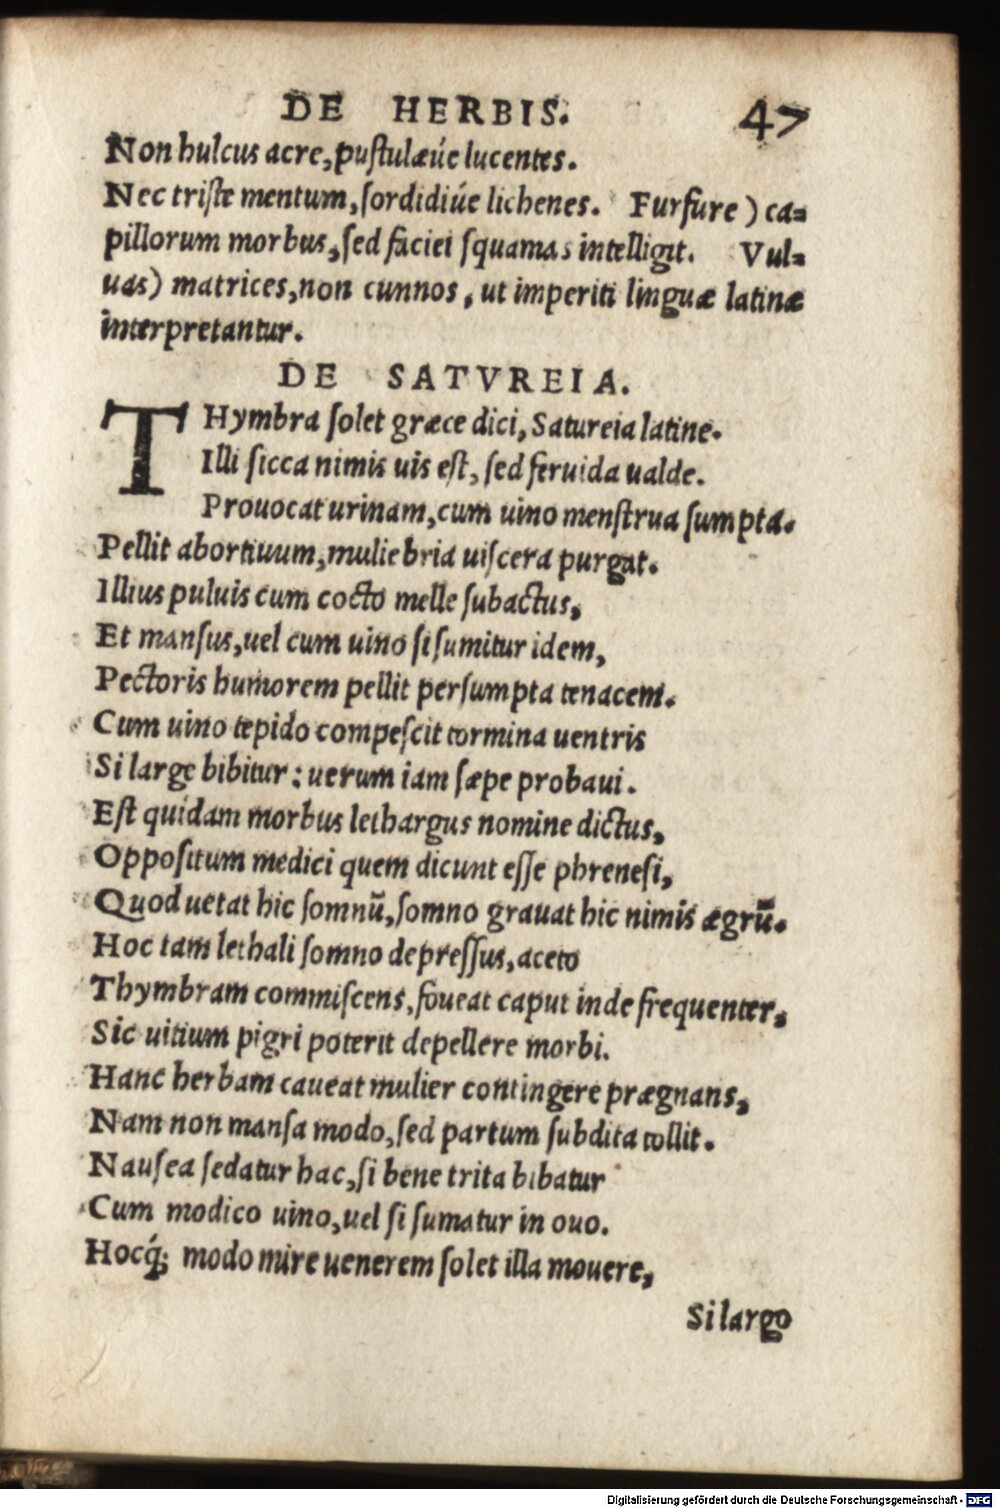 DE HERBIS. 47
Non hulcus acre, puſtulæúe lucentes.
Nec triſte mentum, ſordidiúe lichenes. Furfure) ca=
pillorum morbus, ſed faciei ſquamas intelligit. Vul=
uas) matrices, non cunnos, ut imperiti linguæ latinæ
interpretantur.
DE SATVREIA.
THymbra ſolet græce dici, Satureia latine.
Illi ſicca nimis uis eſt, ſed feruida ualde.
Prouocat urinam, cum uino menſtrua ſumpta.
Pellit abortiuum, muliebria uiſcera purgat.
Illius puluis cum cocto melle ſubactus,
Et manſus, uel cum uino ſi ſumitur idem,
Pectoris humorem pellit perſumpta tenacem.
Cum uino tepido compeſcit tormina uentris
Si large bibitur: uerum iam ſæpe probaui.
Eſt quidam morbus lethargus nomine dictus,
Oppoſitum medici quem dicunt eſſe phreneſi,
Quod uetat hic ſomnū, ſomno grauat hic nimis ægrū.
Hoc tam lethali ſomno depreſſus, aceto
Thymbram commiſcens, foueat caput inde frequenter,
Sic uitium pigri poterit depellere morbi.
Hanc herbam caueat mulier contingere prægnans,
Nam non manſa modo, ſed partum ſubdita tollit.
Nauſea ſedatur hac, ſi bene trita bibatur
Cum modico uino, uel ſi ſumatur in ouo.
Hocq́; modo mire uenerem ſolet illa mouere,
Si largo
Digitalisierung gefördert durch die Deutsche Forschungsgemeinschaft - DFG